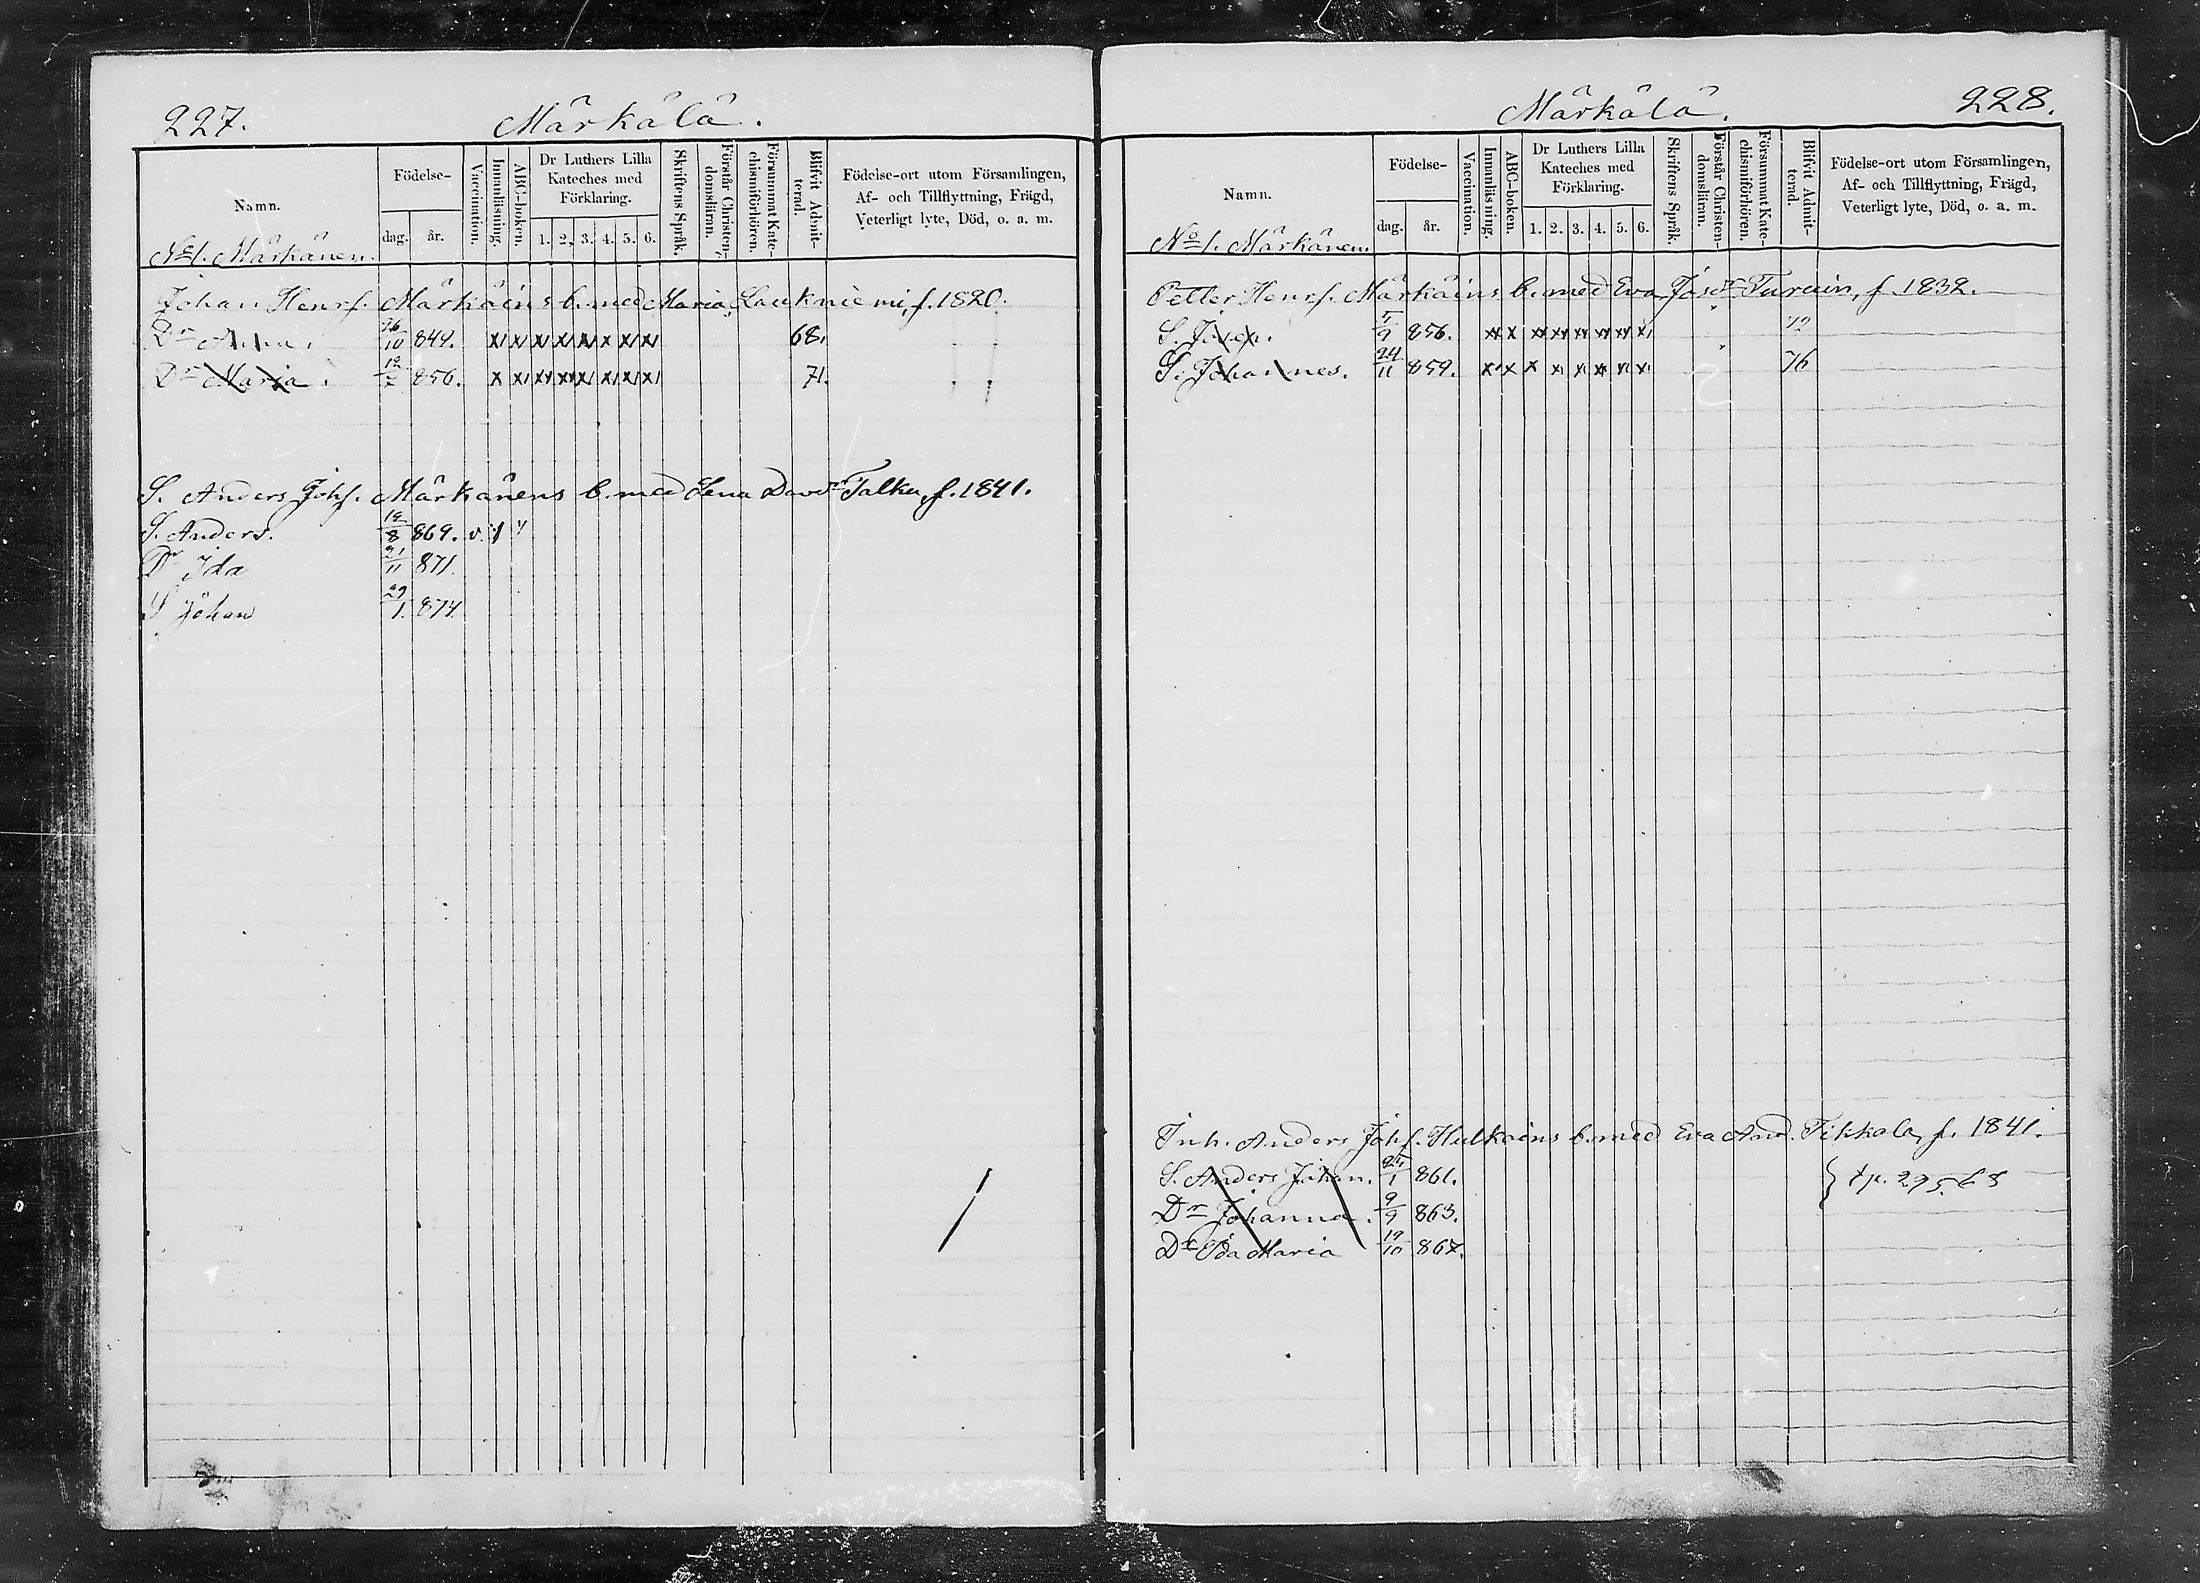 227.
Märkälä.
Namn.
Födelse-
dag. år.
Vaccination.
Innanläsning.
ABC-boken.
Dr Luthers Lilla Kateches med Förklaring.
1. 2. 3. 4. 5. 6.
Skriftens Språk.
Förstår Christendomsläran.
Försummat Katechismiförhören.
Blifvit Admitterad.
Födelse-ort utom Församlingen, Af- och Tillflyttning, Frägd, Veterligt lyte, Död, o. a. m.
No 1. Märkänen.
Johan Henrs. Märkäins b. med Maria Laukniemi, f. 1820.
Dr Anna. 26/10 849. 68.
Dr Maria. 12/2 856. 71.
S. Anders Johs. Märkänens b. med Lena Davdr Talka, f. 1841.
S. Anders. 12/8 869. v.
Dr Ida 21/11 871.
S Johan 29/1. 874.
228.
Märkälä.
Namn.
Födelse-
dag. år.
Vaccination.
Innanläsning.
ABC-boken.
Dr Luthers Lilla Kateches med Förklaring.
1. 2. 3. 4. 5. 6.
Skriftens Språk.
Förstår Christendomsläran.
Försummat Katechismiförhören.
Blifvit Admitterad.
Födelse-ort utom Församlingen, Af- och Tillflyttning, Frägd, Veterligt lyte, Död, o. a. m.
No 1. Märkänen.
Petter Henrs. Märkäins b. med Eva Josdr Turuin, f. 1832.
S. 5/9 856. 72
S. Johannes. 24/11 859. 76
Inh. Anders Johs. Hulkoins b. med Eva And. Tikkala, f. 1841.
S. Anders Johan. 25/1 861.
} 295. 68
Dr Johanna. 9/9 863.
Dr Ida Maria 19/10 867.